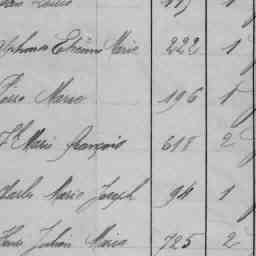 Alphonse Etienne Marie 222 1
Marie 196 1
Fs Marie François 618 2
Charles Marie Joseph 94 1
Julien Marie 725 2